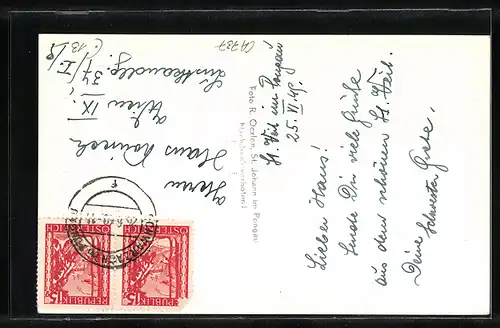 CA787
St. Veit im Pongau
25. VI. 49.
Lieber Hans!
Sende Dir viele Grüße
aus dem schönen St. Veit.
Deine Schwester Grete.
Foto R. Oczlon, St. Johann im Pongau
Nachdruck verboten!
Herrn
Hans
Wien IX.,
REPUBLIK
ÖSTERREICH
15
REPUBLIK
ÖSTERREICH
15